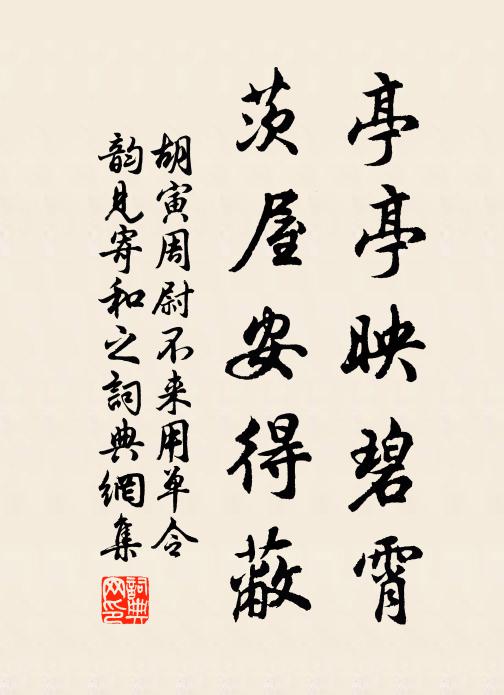 亭亭映碧霄
茨屋安得蔽
胡寅周尉不来用单令
韵见寄和之词典網集
詞典網印